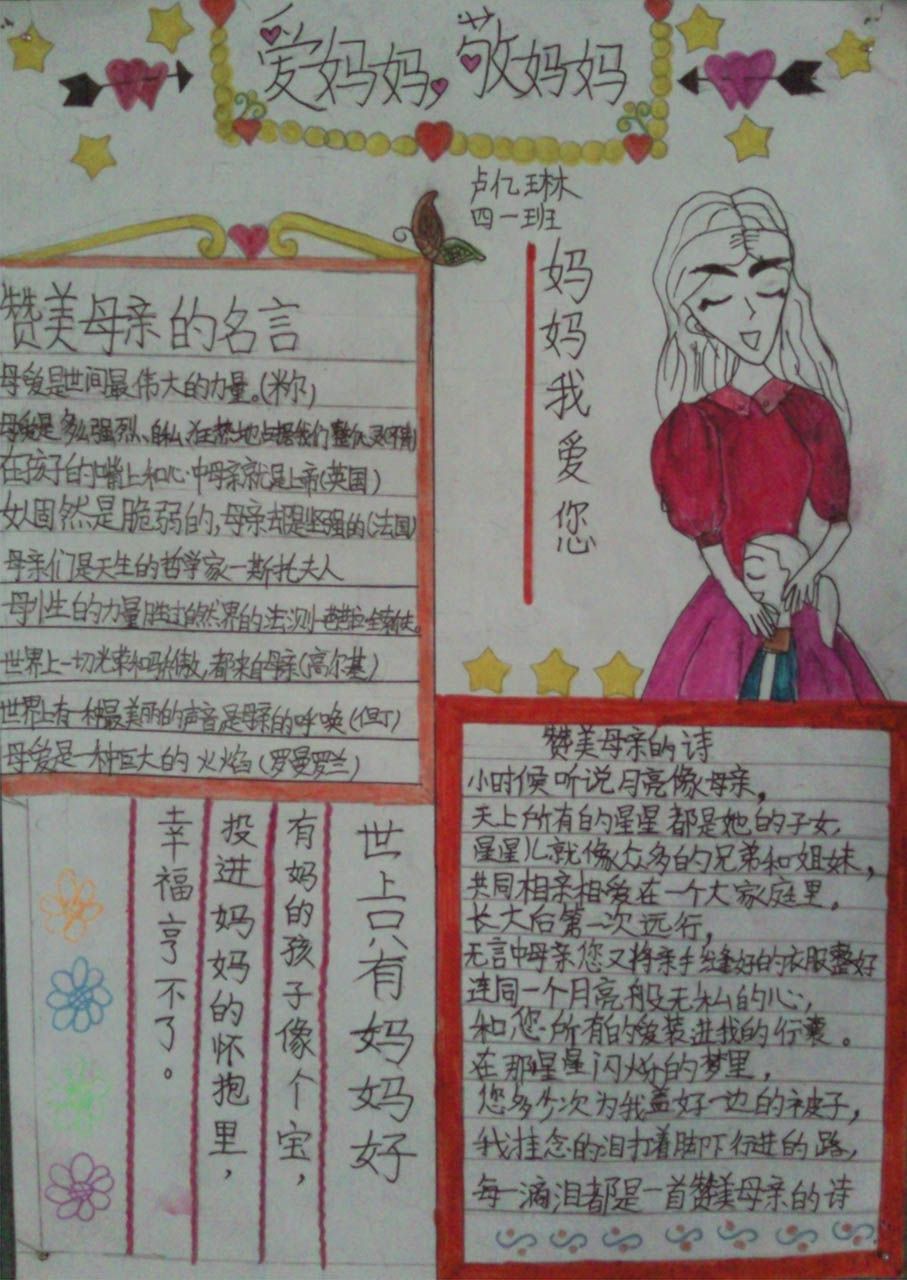 爱妈妈，敬妈妈
卢亿琳
四一班
妈妈我爱您
赞美母亲的名言
母爱是世间最伟大的力量。(米尔)
母爱是多么强烈、自私、狂热地占据我们整个心灵
在孩子的嘴上和心中母亲就是上帝(英国)
女人固然是脆弱的,母亲却是坚强的(法国)
母亲们是天生的哲学家一斯托夫人
的力量胜过自然界的法则
世界上一切光荣和骄傲,都来自母亲(高尔基)
世界上有一种最美丽的声音是母亲的呼唤(但丁)
母爱是一种巨大的火焰(罗曼罗兰)
世上只有妈妈好
有妈的孩子像个宝,
投进妈妈的怀抱里,
幸福亨不了。
赞美母亲的诗
小时候听说月亮像母亲,
天上所有的星星都是她的子女,
星星儿就像众多的兄弟和姐妹,
共同相亲相爱在一个大家庭里。
长大后第一次远行,
无言中母亲您又将亲手缝好的衣服整好
连同一个月亮般无私的心,
和您所有的爱装进我的行囊。
在那星星闪烁的梦里,
您多少次为我盖好一边的被子,
我挂念的泪打着脚下行进的路,
每一滴泪都是一首赞美母亲的诗